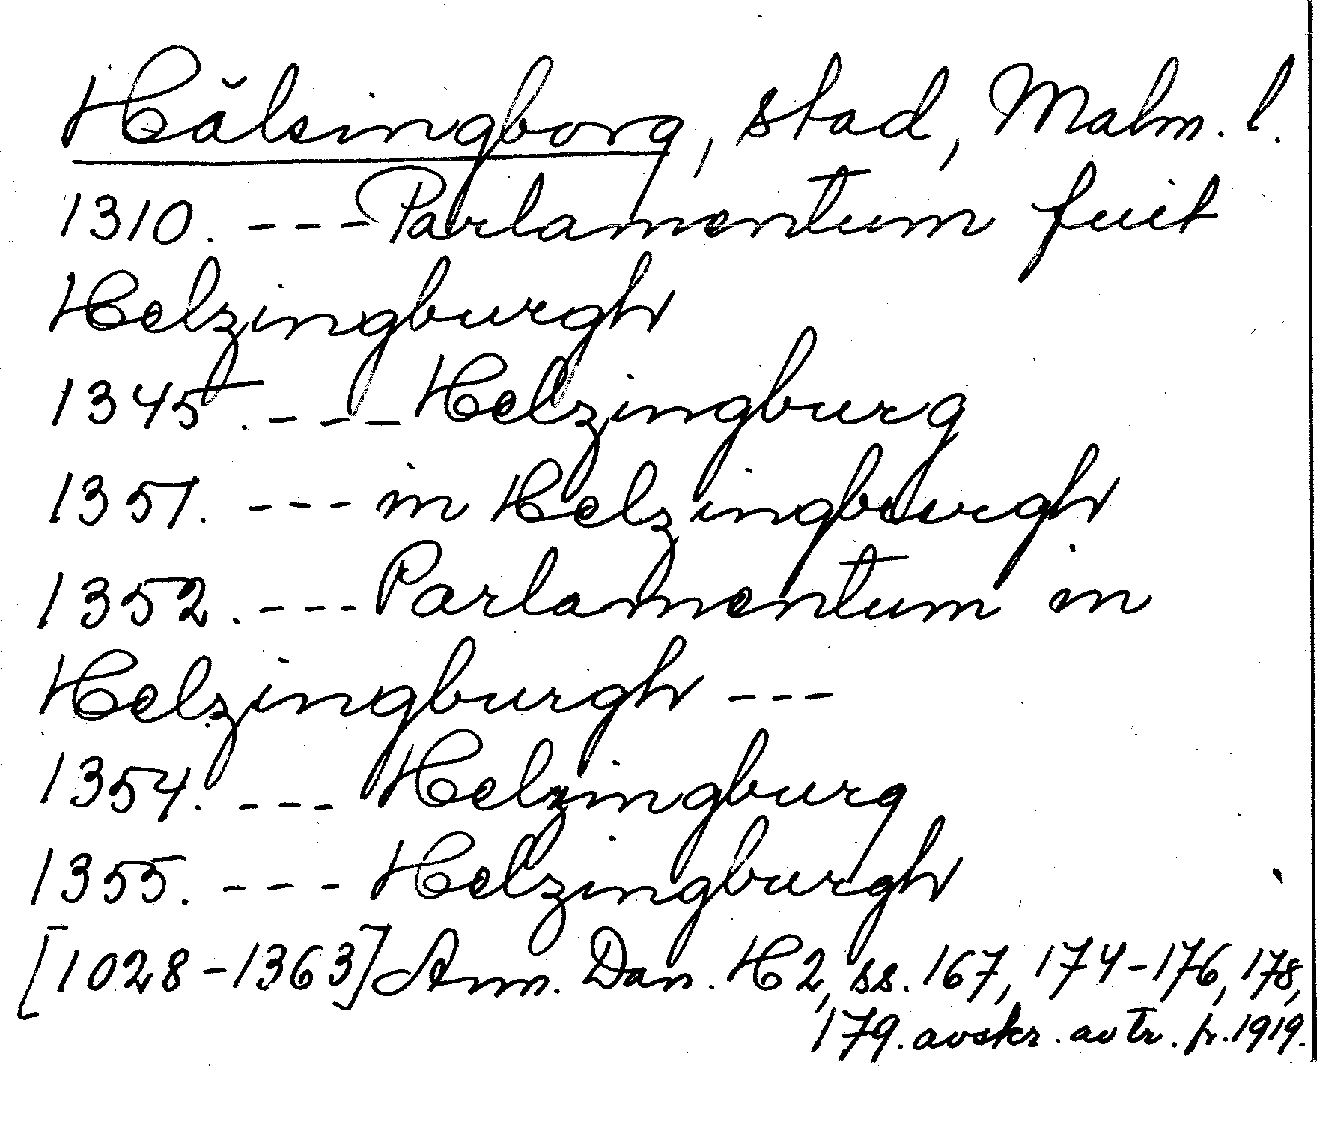 Hälsingborg, stad, Malm. l.
1310. --- Parlamentum fuit
Helzingburgh
1345. --- Helzingburg
1351. --- in Helzingburgh
1352. --- Parlamentum in
Helzingburgh ---
1354. --- Helzingburg
1355. --- Helzingburgh
[1028-1363] Ann. Dan. H2, ss. 167, 174-176, 178,
179. avskr. av tr. fr. 1919.